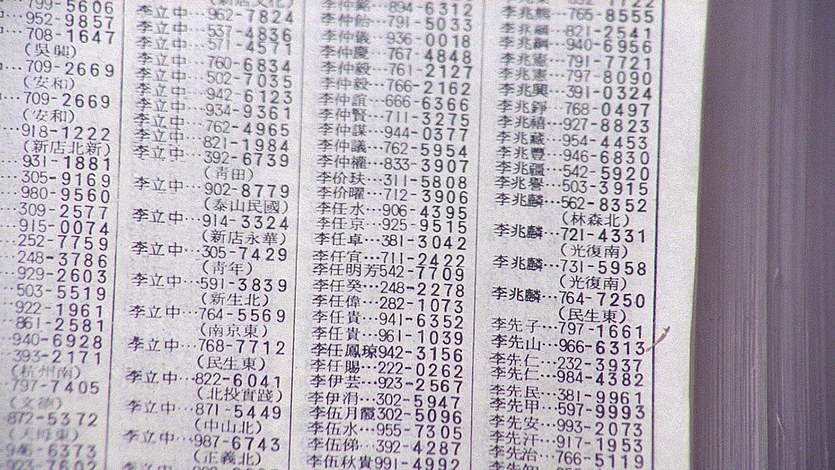 799-5606
952-9857
708-1647
(吳興)
709-2669
(安和)
709-2669
(安和)
918-1222
(新店北新)
931-1881
305-9169
980-9560
309-2577
915-0074
252-7759
248-3786
929-2603
503-5519
922-1961
861-2581
940-6928
393-2171
(杭州南)
797-7405
(文德)
872-5372
(天母東)
946-6373
李立中…962-7824
李立中…537-4836
李立中…571-4571
李立中…760-6834
李立中…502-7035
李立中…942-6123
李立中…934-9361
李立中…762-4965
李立中…821-1984
李立中…392-6739
(青田)
李立中…902-8779
(泰山民國)
李立中…914-3324
(新店永華)
李立中…305-7429
(青年)
李立中…591-3839
(新生北)
李立中…764-5569
(南京東)
李立中…768-7712
(民生東)
李立中…822-6041
(北投實踐)
李立中…871-5449
(中山北)
李立中…987-6743
(正義北)
894-6312
李仲怡…791-5033
李仲儀…936-0018
李仲慶…767-4848
李仲毅…761-2127
李仲毅…766-2162
李仲誼…666-6366
李仲賢…711-3275
李仲謀…944-0377
李仲議…762-5954
李仲權…833-3907
李价玞…311-5808
李价曜…712-3906
李任水…906-4395
李任京…925-9515
李任卓…381-3042
李任宜…711-2422
李任明芳542-7709
李任癸…248-2278
李任偉…282-1073
李任貴…941-6352
李任貴…961-1039
李任鳳琼942-3156
李任賜…222-0262
李伊芸…923-2567
李伊涓…302-5947
李伍月霞302-5096
李伍水…955-7305
李伍俤…392-4287
李伍秋貴991-4992
李兆熊…765-8555
李兆福…821-2541
李兆綱…940-6956
李兆憲…791-7721
李兆憲…797-8090
李兆興…391-0324
李兆錚…768-0497
李兆禧…927-8823
李兆藏…954-4453
李兆豐…946-6830
李兆疆…542-5920
李兆譽…503-3915
李兆麟…562-8352
(林森北)
李兆麟…721-4331
(光復南)
李兆麟…731-5958
(光復南)
李兆麟…764-7250
(民生東)
李先子…797-1661
李先山…966-6313
李先仁…232-3937
李先仁…984-4382
李先民…381-9961
李先甲…597-9993
李先安…993-2073
李先汗…917-1953
李先治…766-5119